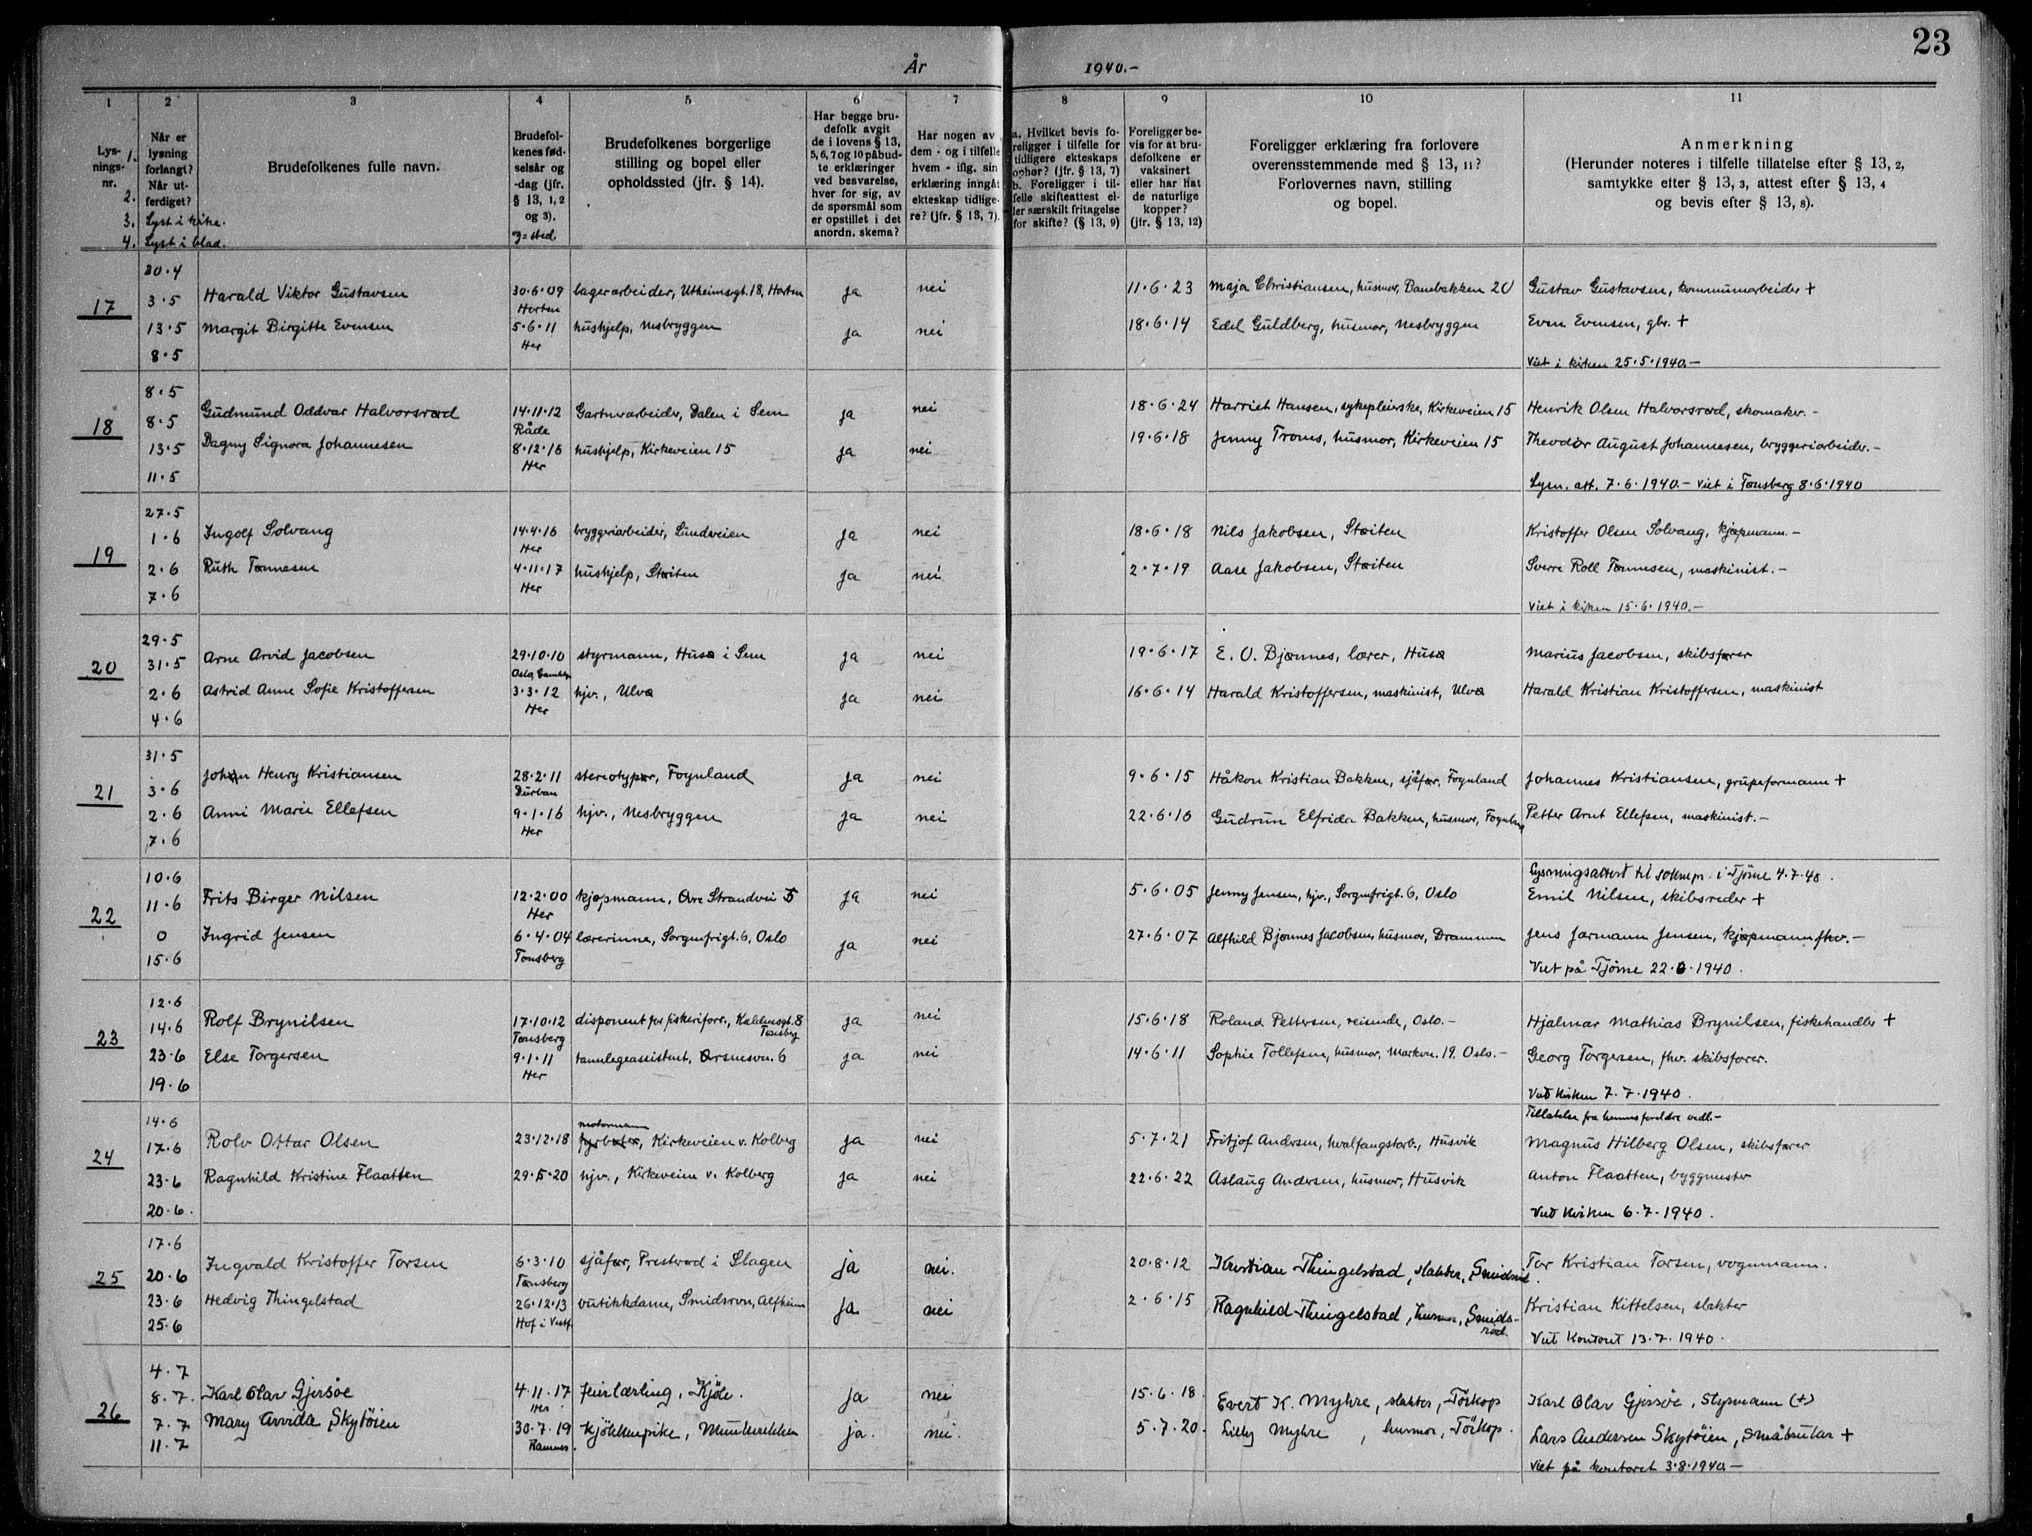 23
År 1940.-
1 2 3 4 5 6 7 8 9 10 11
Lysningsnr. 1. 2. 3. 4.
Når er lysning forlangt? Når utferdiget? Lyst i kirke. Lyst i blad.
Brudefolkenes fulle navn.
Brudefolkenes fødselsår og -dag (jfr. § 13, 1, 2 og 3). 7=sted.
Brudefolkenes borgerlige stilling og bopel eller opholdssted (jfr. § 14).
Har begge brudefolk avgit de i lovens § 13, 5, 6, 7 og 10 påbudte erklæringer ved besvarelse, hver for sig, av de spørsmål som er opstillet i det anordn. skema?
Har nogen av dem - og i tilfelle hvem - iflg. sin erklæring inngått ekteskap tidligere? (jfr. § 13, 7).
a. Hvilket bevis foreligger i tilfelle for tidligere ekteskaps ophør? (jfr. § 13, 7) b. Foreligger i tilfelle skifteattest eller særskilt fritagelse for skifte? (§ 13, 9)
Foreligger bevis for at brudefolkene er vaksinert eller har hat de naturlige kopper? (jfr. § 13, 12)
Foreligger erklæring fra forlovere overensstemmende med § 13, 11? Forlovernes navn, stilling og bopel.
Anmerkning (Herunder noteres i tilfelle tillatelse efter § 13, 2, samtykke efter § 13, 3, attest efter § 13, 4 og bevis efter § 13, 8).
17
30.4 3.5 13.5 8.5
Harald Viktor Gustavsen 30.6.09 Horten lagerarbeider, Utheimsgt. 18, Horten ja nei 11.6.23 Maja Christiansen, husmor, Banebakken 20 Gustav Gustavsen, kommunearbeider +
Margit Birgitte Evensen 5.6.11 Her hushjelp, Nesbryggen ja nei 18.6.14 Edel Guldberg, husmor, Nesbryggen Even Evensen, gbr. +
Viet i kirken 25.5.1940.-
18
8.5 8.5 13.5 11.5
Gudmund Oddvar Halvorsrød 14.11.12 Råde Gartnerarbeider, Dalen i Sem ja nei 18.6.24 Harriet Hansen, sykepleierske, Kirkeveien 15 Henrik Olsen Halvorsrød, skomaker.-
Dagny Signora Johannesen 8.12.16 Her hushjelp, Kirkeveien 15 ja nei 19.6.18 Jenny Troms, husmor, Kirkeveien 15 Theodor August Johannesen, bryggeriarbeider.-
Lysn. att. 7.6.1940.- Viet i Tønsberg 8.6.1940
19
27.5 1.6 2.6 7.6
Ingolf Solvang 14.4.16 Her bryggeriarbeider, Lundveien ja nei 18.6.18 Nils Jakobsen, Støiten Kristoffer Olsen Solvang, kjøpmann.-
Ruth Tønnesen 4.11.17 Her hushjelp, Støiten ja nei 2.7.19 Aase Jakobsen, Støiten Sverre Roll Tønnesen, maskinist.-
Viet i kirken 15.6.1940.-
20
29.5 31.5 2.6 4.6
Arne Arvid Jacobsen 29.10.10 styrmann, Husø i Sem ja nei 19.6.17 E. O. Bjønnes, lærer, Husø Marius Jacobsen, skibsfører
Astrid Anne Sofie Kristoffersen 3.3.12 Her hjv., Ulvø ja nei 16.6.14 Harald Kristoffersen, maskinist, Ulvø Harald Kristian Kristoffersen, maskinist
21
31.5 3.6 2.6 7.6
John Henry Kristiansen 28.2.11 Durban stereotypør, Føynland ja nei 9.6.15 Håkon Kristian Bakken, sjåfør, Føynland Johannes Kristiansen, grupeformann +
Anni Marie Ellefsen 9.1.16 Her hjv., Nesbryggen ja nei 22.6.16 Gudrun Elfrida Bakken, husmor, Føynland Petter Arnt Ellefsen, maskinist.-
22
10.6 11.6 0 15.6
Lysningsattest til soknepr. i Tjøme 4.7.40.
Frits Birger Nilsen 12.2.00 Her kjøpmann, Øvre Strandvei 5 ja nei 5.6.05 Jenny Jensen, hjv., Sorgenfrigt. 6, Oslo Emil Nilsen, skibsreder +
Ingrid Jensen 6.4.04 Tønsberg lærerinne, Sorgenfrigt. 6, Oslo ja nei 27.6.07 Alfhild Bjønnes Jacobsen, husmor, Drammen Jens Jørmann Jensen, kjøpmann fhv.-
Viet på Tjøme 22.6.1940.
23
12.6 14.6 23.6 19.6
Rolf Brynilsen 17.10.12 Tønsberg disponent for fiskeriforr., 8 Tønsberg ja nei 15.6.18 Roland Pettersen, reisende, Oslo.- Hjalmar Mathias Brynilsen, fiskehandler +
Else Torgersen 9.1.11 Her tannlegeassistent, Ørsnesvn. 6 ja nei 14.6.11 Sophie Tollefsen, husmor, Markvn. 19. Oslo.- Georg Torgersen, fhv. skibsfører.
Viet Kirken 7.7.1940.
24
14.6 17.6 23.6 20.6.
Tillatelse fra hennes foreldre vedl.-
Rolv Ottar Olsen 23.12.18 motormann fyrbøter, Kirkeveien v. Kolberg ja nei 5.7.21 Fritjof Andersen, hvalfangstarb., Husvik Magnus Hilberg Olsen, skibsfører
Ragnhild Kristine Flaatten 29.5.20 hjv., Kirkeveien v. Kolberg ja nei 22.6.22 Aslaug Andersen, husmor, Husvik Anton Flaatten, byggmester
Viet Kirken 6.7.1940.
25
17.6 20.6 23.6 25.6
Ingvald Kristoffer Torsen 6.3.10 Tønsberg sjåfør, Presterød i Slagen ja nei. 20.8.12 Kristian Thingelstad, slakter, Smidsrød. Tor Kristian Torsen, vognmann.
Hedvig Thingelstad 26.12.13 Hof i Vestf. butikkdame, Smidsrøn, Alfheim ja nei 2.6.15 Ragnhild Thingelstad, husmor, Smidsrød. Kristian Kittelsen, slakter
Viet Kontoret 13.7.1940.
26
4.7 8.7. 7.7 11.7
Karl Olav Gjersøe 4.11.17 Her feierlærling, Kjøle. ja nei 15.6.18. Evert K. Myhre, slakter, Torkop Karl Olav Gjersøe, Styrmann (+)
Mary Arvida Skytöien 30.7.19 Ramnes. kjökkenpike, Munkerekken ja. nei. 5.7.20. Lilly Myhre, husmor, Torkop. Lars Andersen Skytöien, Småbruker +
Viet på kontoret 3.8.1940.-